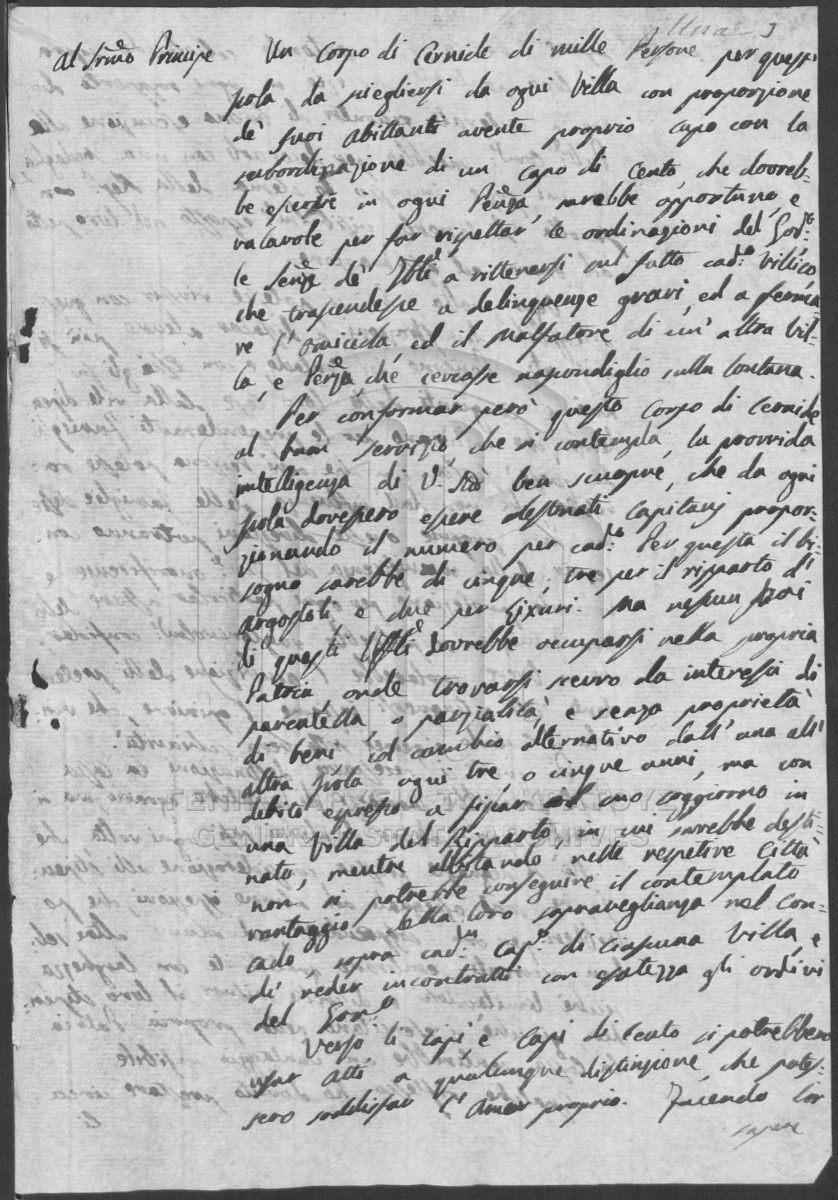 Una 3
Al Ser.mo Principe
Un Corpo di Cernide di mille Persone per quest'
Isola da sciegliersi da ogni Villa con proporzione
de' suoi abittanti avente proprio Capo con la
subordinazione di un Capo di Cento, che dovreb-
be essere in ogni sarebbe opportuno, e
valavole per far rispettar le ordinazioni del Gov.o
le de' a rittenersi sul fatto cad.o Villico,
che trascendesse a delinquenze gravi, ed a ferma-
re l'omicida, ed il malfatore di un' altra Vil-
la, e che cercasse nascondiglio sulla lontana.
Per conformar però questo Corpo di Cernide
al buon servizio, che si contempla, la provvida
intelligenza di V. ben scuopre, che da ogni
Isola dovessero essere destinati Capitanj propor-
zionando il numero per cad.a Per questa il bi-
sogno sarebbe di cinque, tre per il riparto d'
Argostoli, e due per Lixuri. Ma nessun
di questi dovrebbe occuparsi nella propria
Patria, onde trovarsi scevro da interessi di
parentella, o parzialità, e senza proprietà
di beni col cambio alternativo dall' una all'
altra Isola ogni tre, o cinque anni, ma con
debito espresso a fissar il suo soggiorno in
una Villa del Ripparto in cui sarebbe desti-
nato, mentre abitando nelle respetive Città
non si potrebbe conseguire il contemplato
vantaggio della loro sopraveglianza nel Con-
tado, sopra cad.un Cap.o di Ciascuna Villa, e
di veder incontratti con esatezza gli ordini
del Gov.o
Verso li Capi, e Capi di Cento si potrebbero
usar atti a qualunque distinzione, che potes-
sero soddisfar l' Amor proprio. Facendo lor
sapere
ΓΕΝΙΚΑ ΑΡΧΕΙΑ ΤΟΥ ΚΡΑΤΟΥΣ
GENERAL STATE ARCHIVES